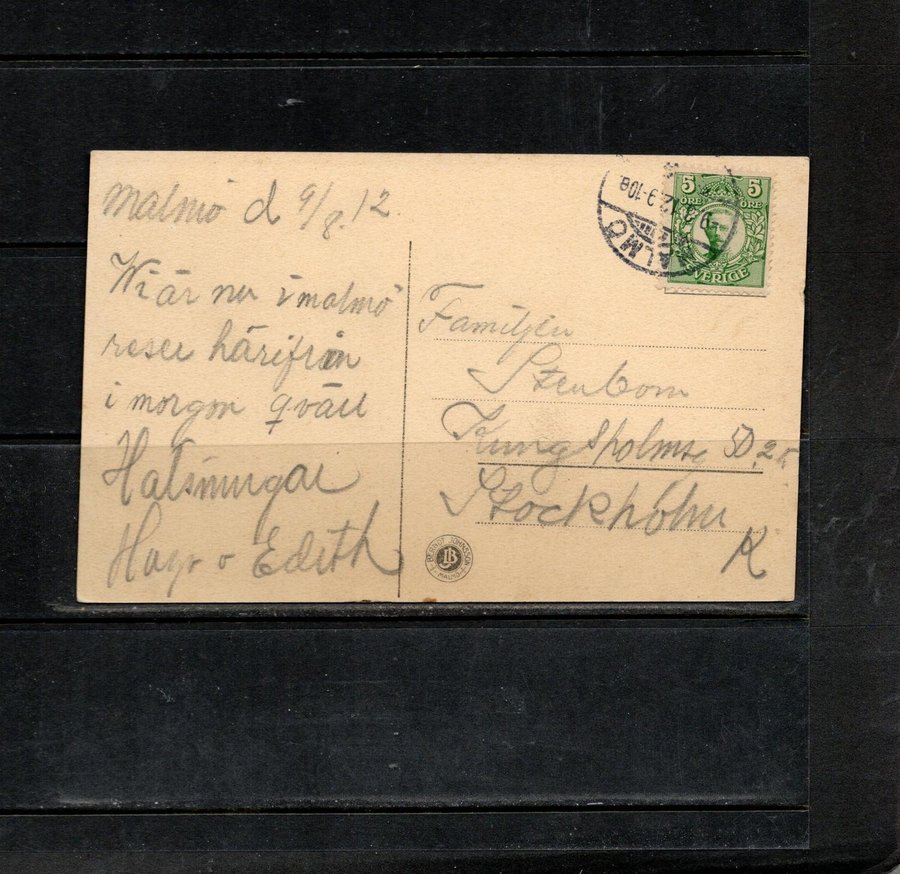 Malmö d 9/8.12
Wi är nu i malmö
reser härifrån
i morgon qväll
Hälsningar
Hugo o Edith
Familjen
Stenbom
Kungsholmsg 50, 2 tr
Stockholm
K
5 5
ÖRE ÖRE
SVERIGE
MALMÖ
9.8.12.9-10e.
BERNDT JOHNSSON
MALMÖ